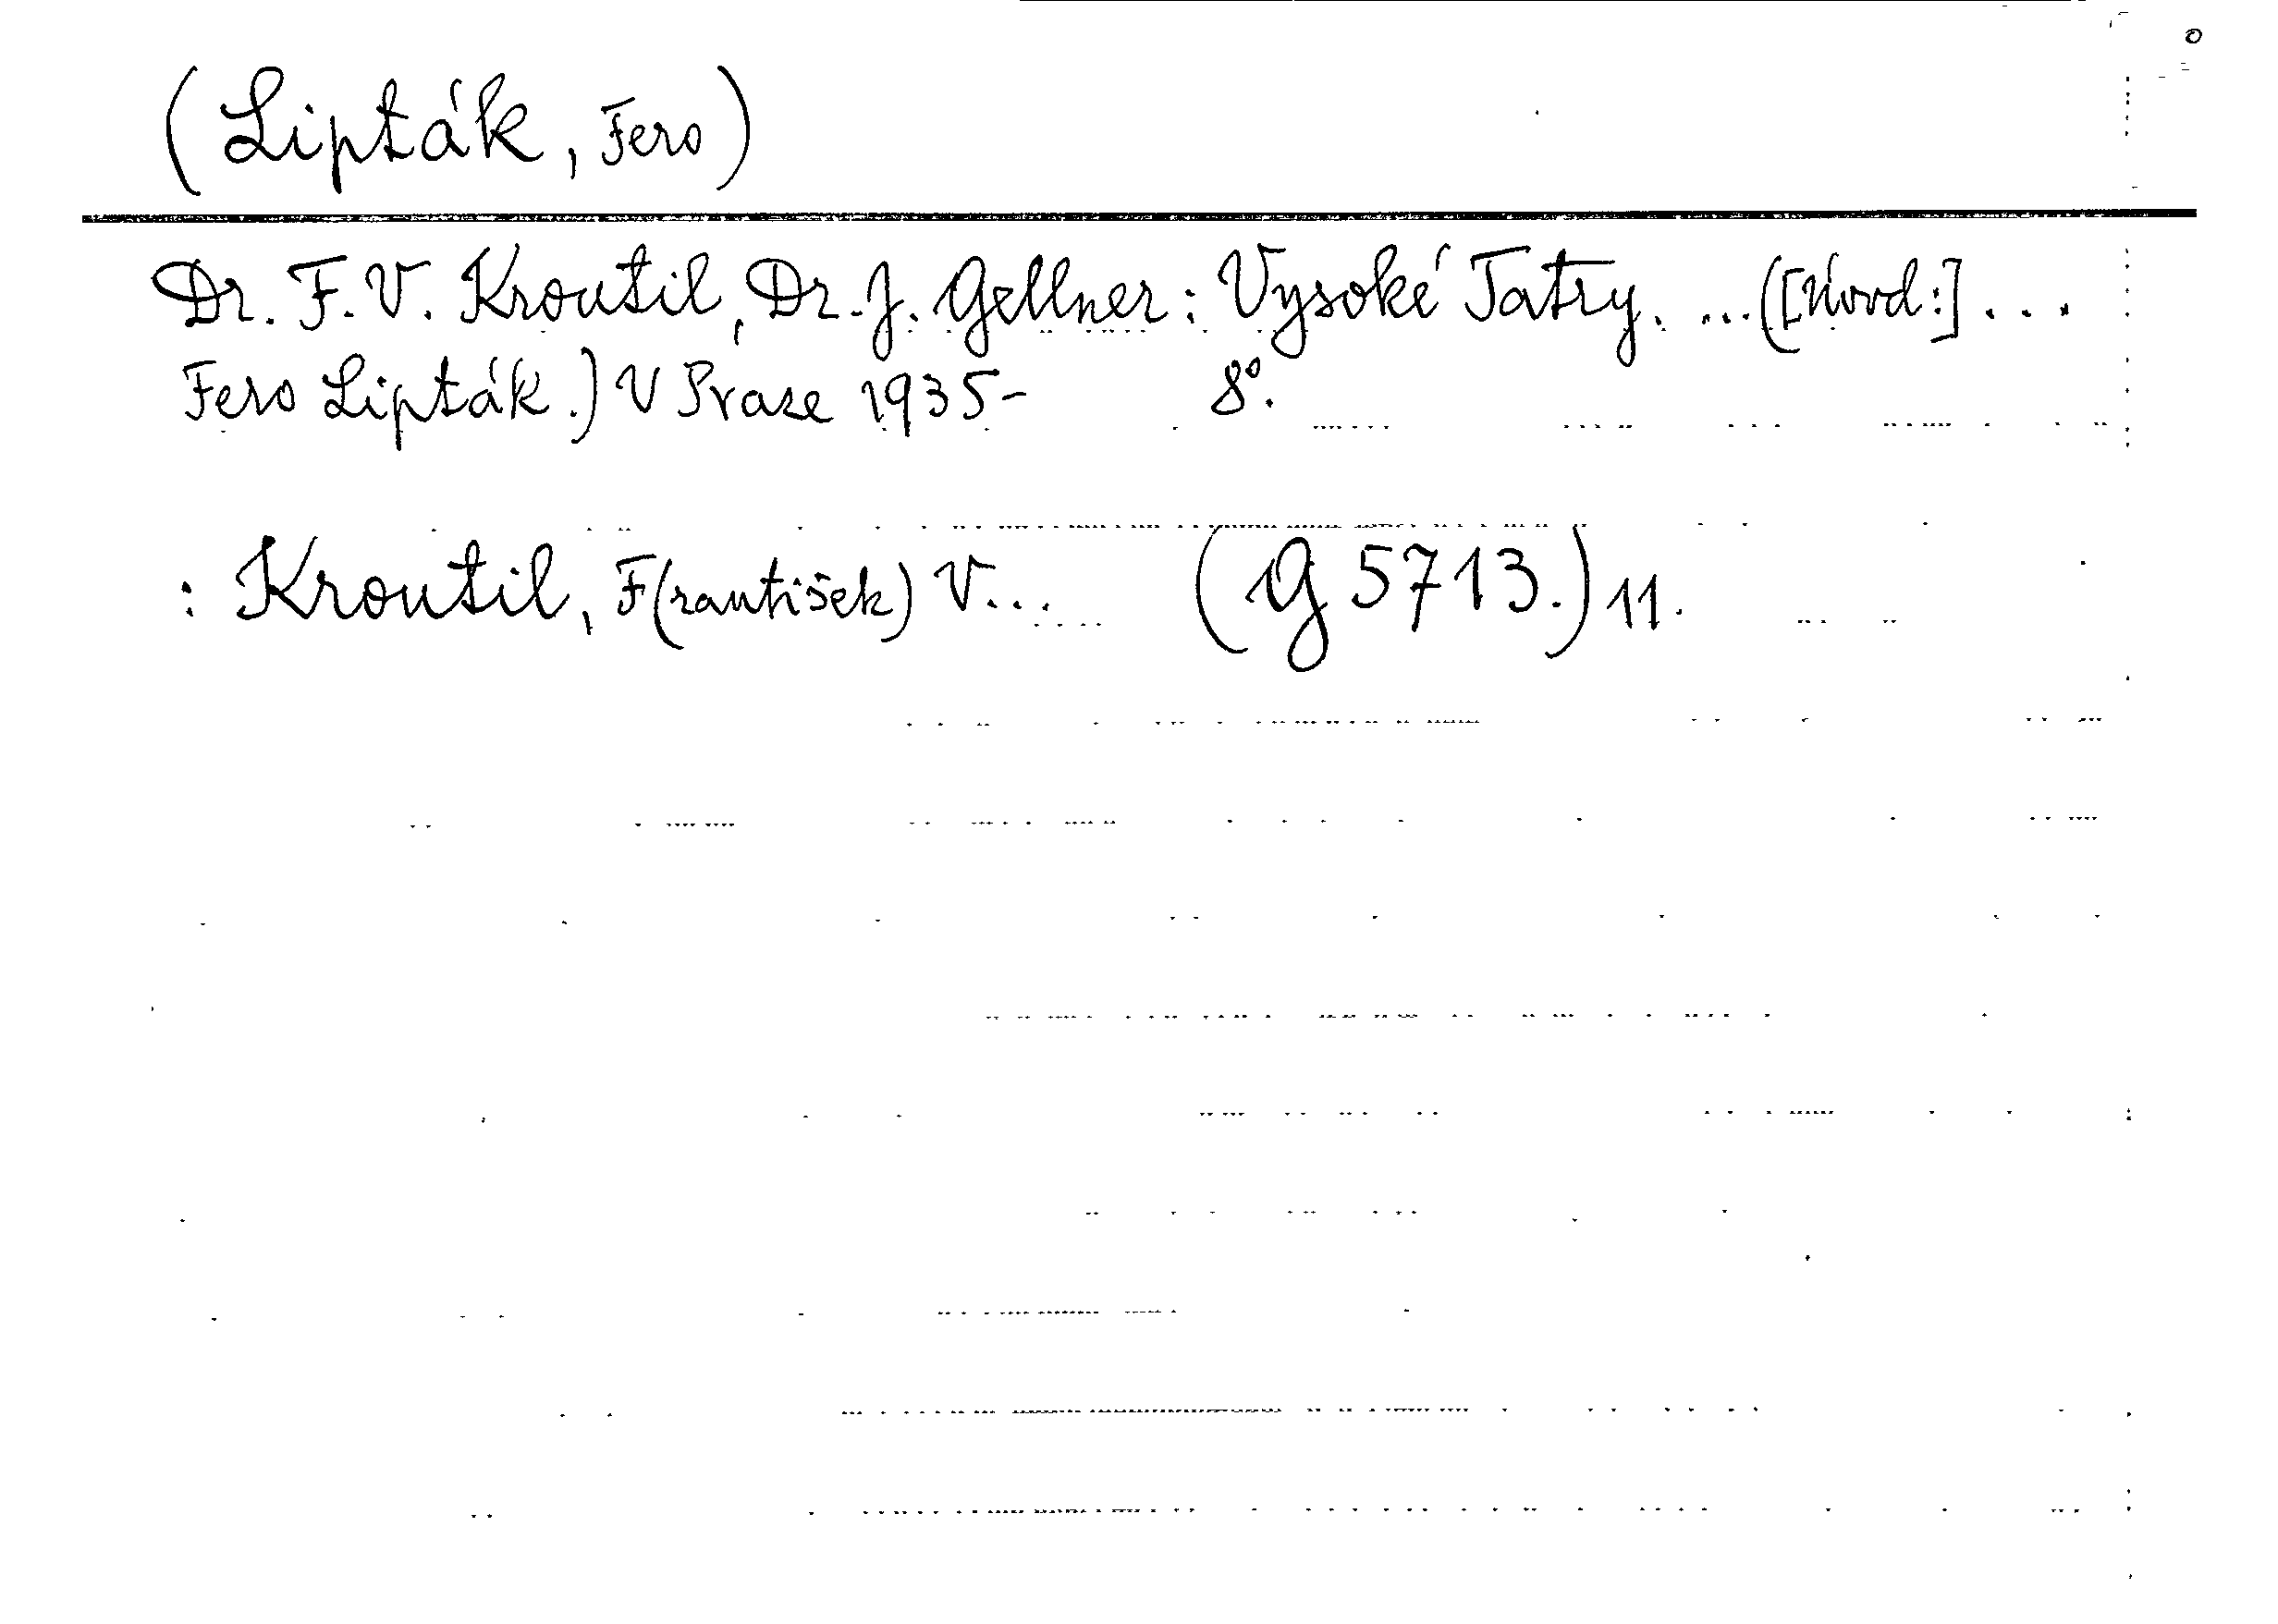 (Lipták, Fero)
Dr. F. V. Kroutil, Dr. J. Gellner: Vysoké Tatry. ... ([Úvod:] ...
Fero Lipták.) V Praze 1935- 8°.
: Kroutil, F(rantišek) V... (G 5713.) 11.